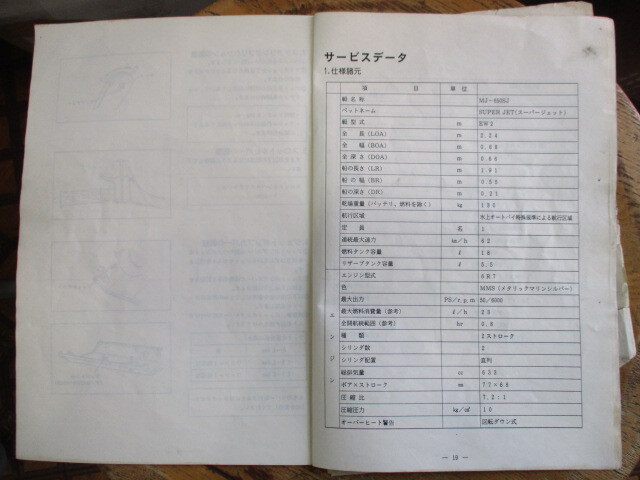 サービスデータ
1. 仕様諸元
項 目 単位
船名称 MJ-650SJ
ペットネーム SUPER JET(スーパージェット)
船型式 EW2
全長(LOA) m 2.24
全幅(BOA) m 0.68
全深さ(DOA) m 0.66
船の長さ(LR) m 1.91
船の幅(BR) m
船の深さ(DR) m 0.21
乾燥重量(バッテリ、燃料を除く) kg 130
航行区域 水上オートバイ特殊基準による航行区域
定員 名 1
連続最大速力 km/h 62
燃料タンク容量 ℓ 18
リザーブタンク容量 ℓ 5.5
エンジン
エンジン型式 6R7
色 MMS(メタリックマリンシルバー)
最大出力 PS/r.p.m
最大燃料消費量(参考) ℓ/h 23
全開航続範囲(参考) hr 0.8
種類 2ストローク
シリンダ数 2
シリンダ配置 直列
総排気量 cc 633
ボア×ストローク mm 77×68
圧縮比 7.2:1
圧縮圧力 kg/cm² 10
オーバーヒート警告 回転ダウン式
— 19 —